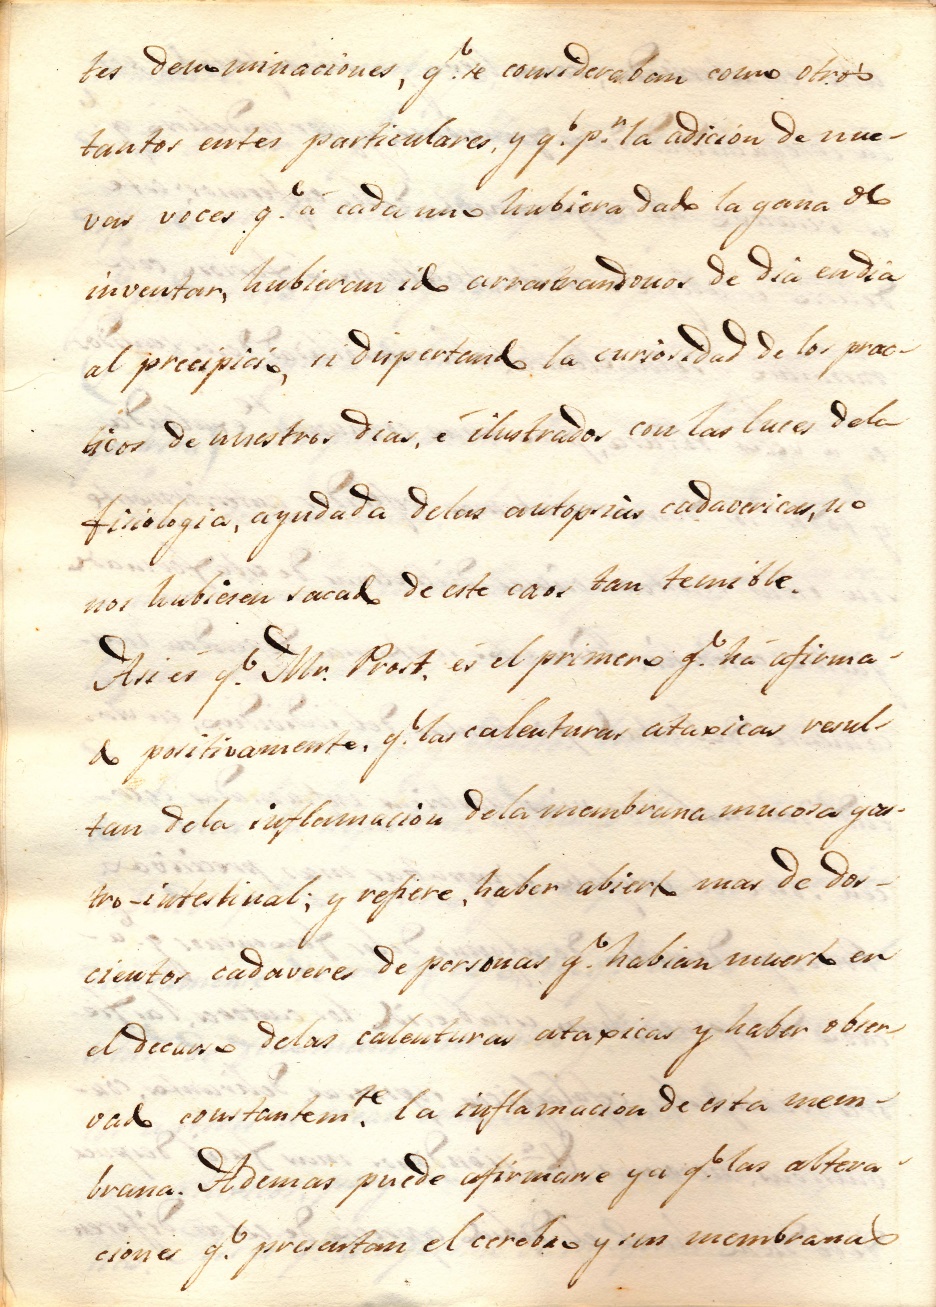 tes denominaciones, q.e se consideraban como otros
tantos entes particulares, y q.e p.r la adición de nue-
vas voces q.e á cada uno hubiera dado la gana de
inventar, hubieran ido arrastrandonos de dia en dia
al precipicio, si dispertando la curiosidad de los prac-
ticos de nuestros dias, é ilustrados con las luces dela
fisiologia, ayudada delas autopsias cadavericas, no
nos hubiesen sacado de este caos tan temible.
Asi és q.e Mr. Prost, és el primero q.e há afirma-
do positivamente, q.e las calenturas ataxicas resul-
tan dela inflamacion dela membrana mucosa gas-
tro-intestinal; y refiere, haber abierto mas de dos-
cientos cadaveres de personas q.e habian muerto en
el decurso delas calenturas ataxicas y haber obser-
vado constantem.te la inflamacion de esta mem-
brana. Ademas puede afirmarse ya q.e las altera-
ciones q.e presentan el cerebro y sus membranas